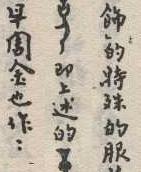 飾的特殊的服
即上述的
早周金也作：